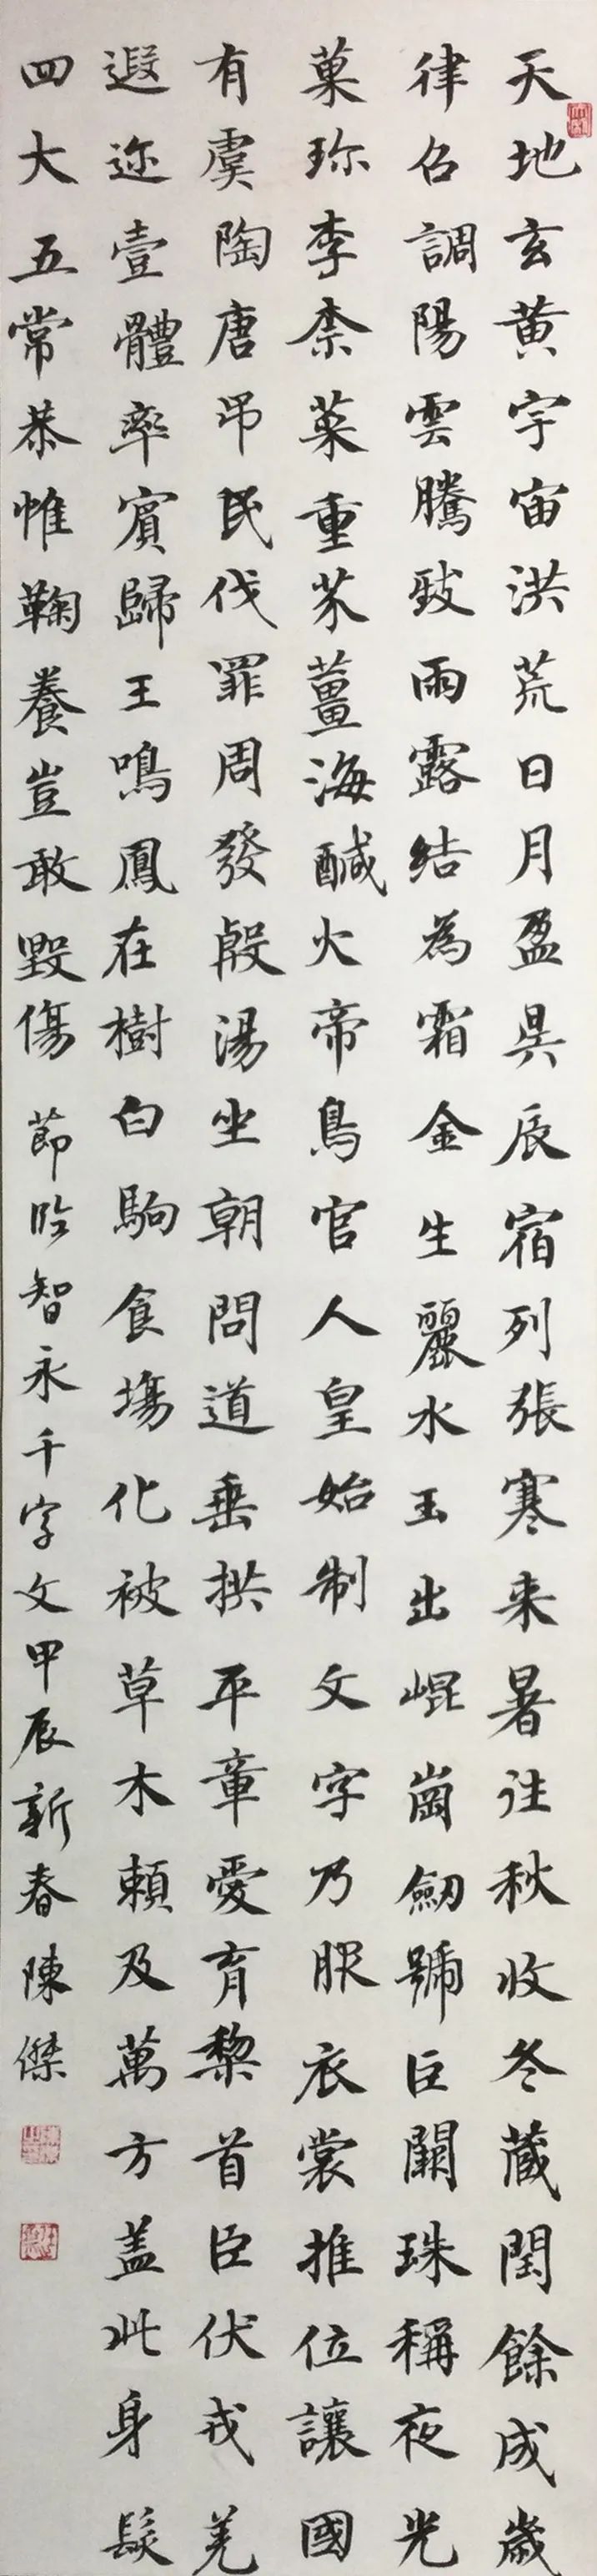 天地玄黄宇宙洪荒日月盈昃辰宿列張寒来暑往秋收冬藏閏餘成歲
律召調陽雲騰致雨露結為霜金生麗水玉出崐崗劒號巨闕珠稱夜光
菓珎李柰菜重芥薑海醎火帝鳥官人皇始制文字乃服衣裳推位讓國
有虞陶唐吊民伐罪周發殷湯坐朝問道垂拱平章愛育黎首臣伏戎羌
遐迩壹體率賓歸王鳴鳳在樹白駒食塲化被草木賴及萬方盖此身髮
四大五常恭惟鞠養豈敢毀傷 節臨智永千字文甲辰新春陳傑